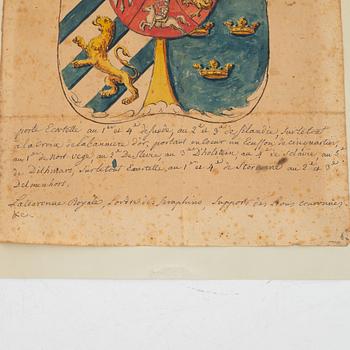 porte Ecartelé au 1er et 4e de suède, au 2e et 3e de finlande, Sur le tout
à la Croix de la banniere d'or, portant en coeur un Ecusson de cinq quartiers
au 1er de norvege, au 2e de Slevic, au 3e D'holstein, au 4e de Sclavie, au 5e
de dithmars, Sur le tous Ecartelé, au 1er et 4e de Stormarie au 2e et 3e
Delmenhors.
La Couronne Royale, l'ordre des Seraphins, Supports des Lions couronnées
&c.